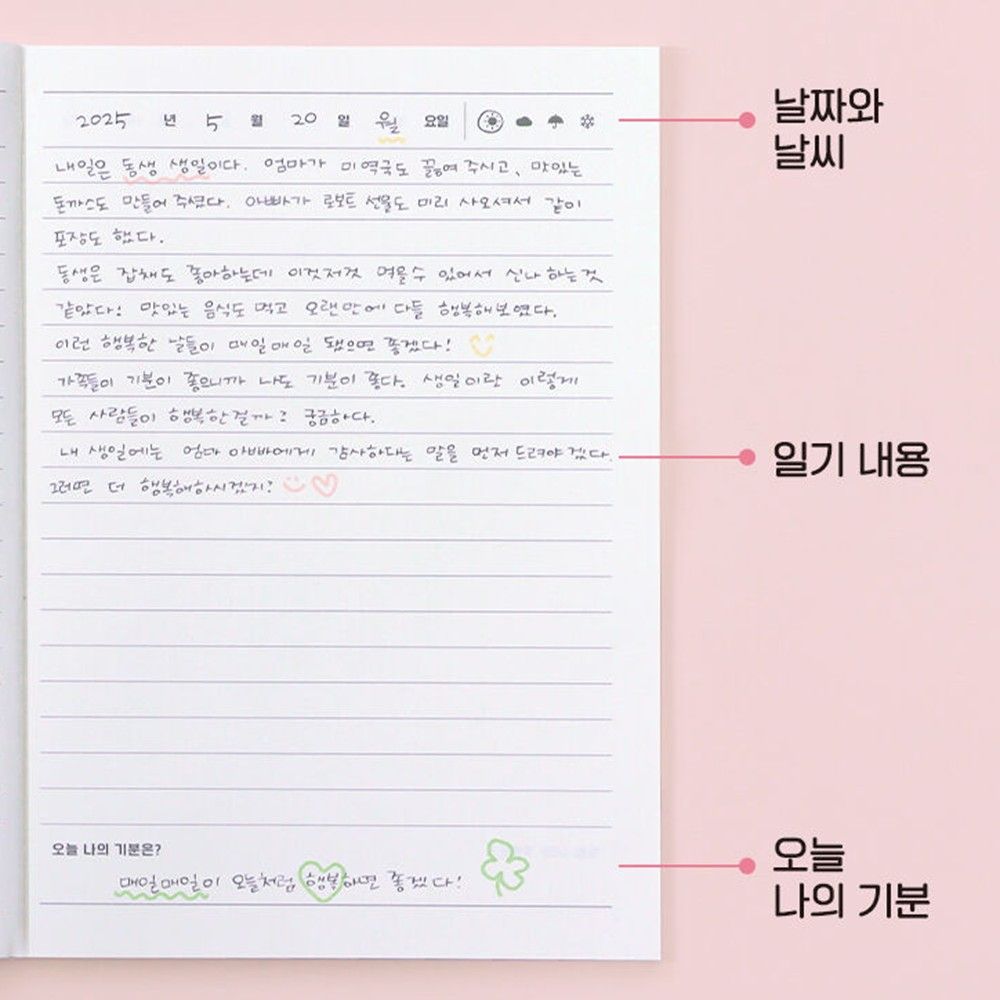 2025 년 5 월 20 일 월 요일
날짜와
날씨
내일은 동생 생일이다. 엄마가 미역국도 끓여 주시고, 맛있는
돈까스도 만들어 주셨다. 아빠가 로보트 선물도 미리 사오셔서 같이
포장도 했다.
동생은 잡채도 좋아하는데 이것저것 먹을 수 있어서 신나 하는 것
같았다! 맛있는 음식도 먹고 오랜만에 다들 행복해보였다.
이런 행복한 날들이 매일매일 됐으면 좋겠다!
가족들이 기분이 좋으니까 나도 기분이 좋다. 생일이란 이렇게
모든 사람들이 행복한걸까? 궁금하다.
내 생일에는 엄마 아빠에게 감사하다는 말을 먼저 드려야겠다.
그러면 더 행복해하시겠지?
일기 내용
오늘 나의 기분은?
매일매일이 오늘처럼 행복하면 좋겠다!
오늘
나의 기분